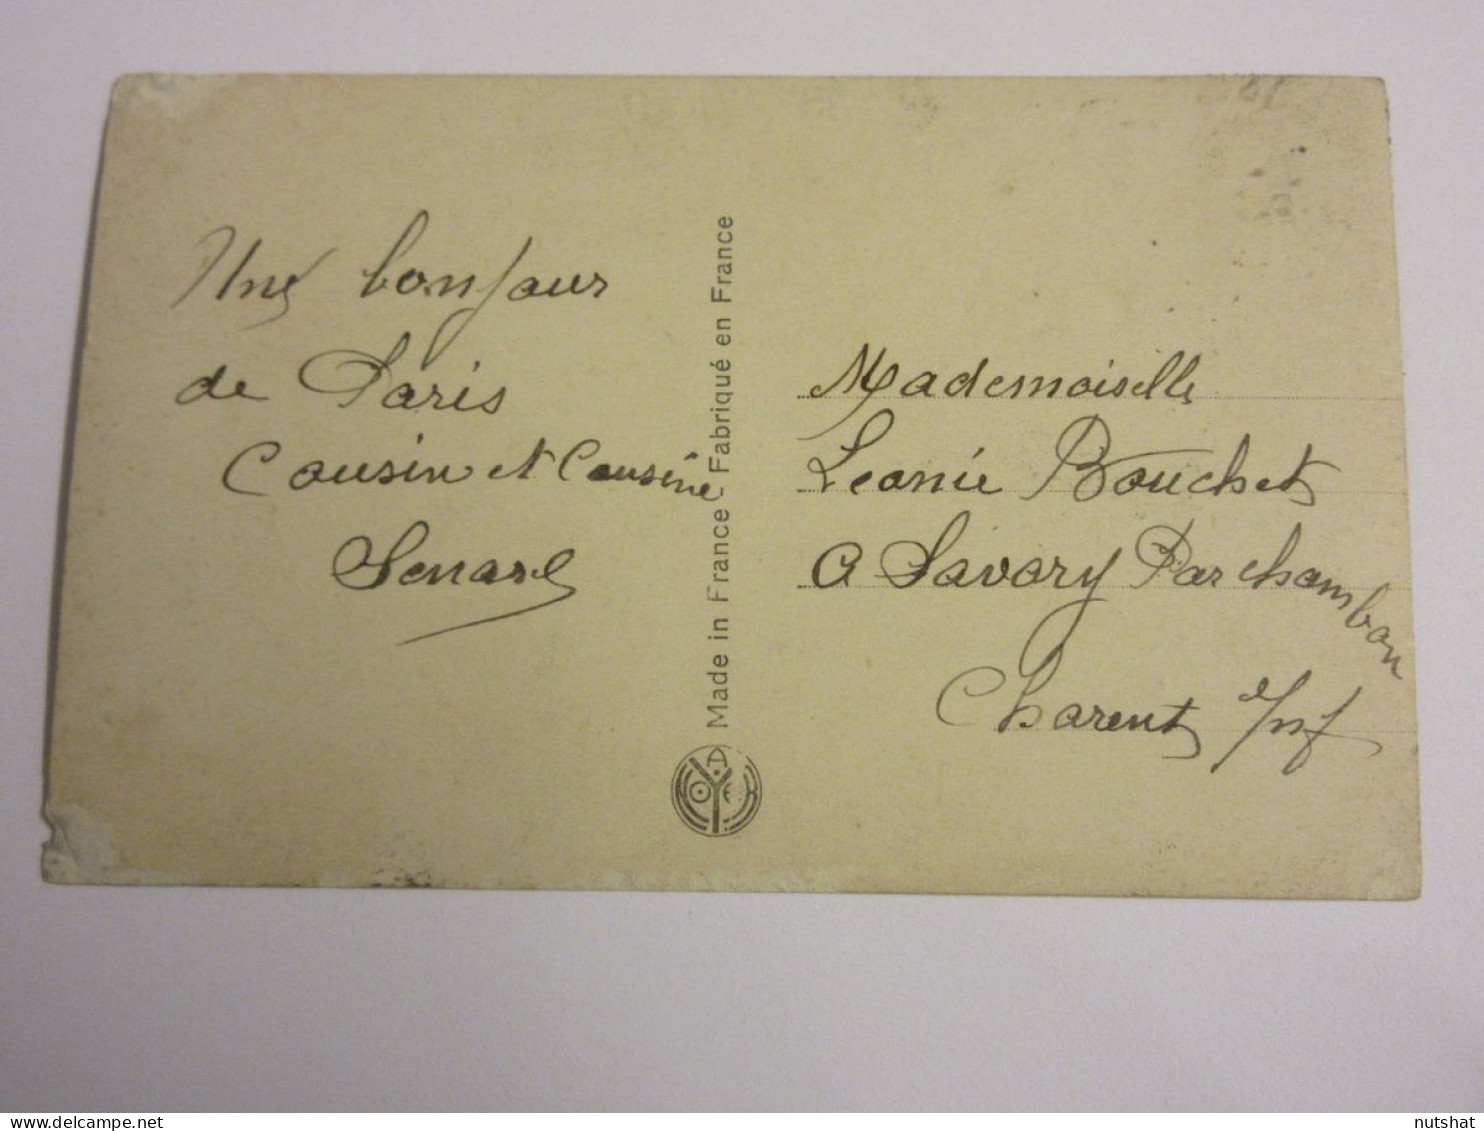 Une bonjour
de Paris
Cousin et Cousine
Senard
Made in France - Fabriqué en France
Mademoiselle
Leonie Bouchet
a Savary Par chambon
Charente Inf
nutshat